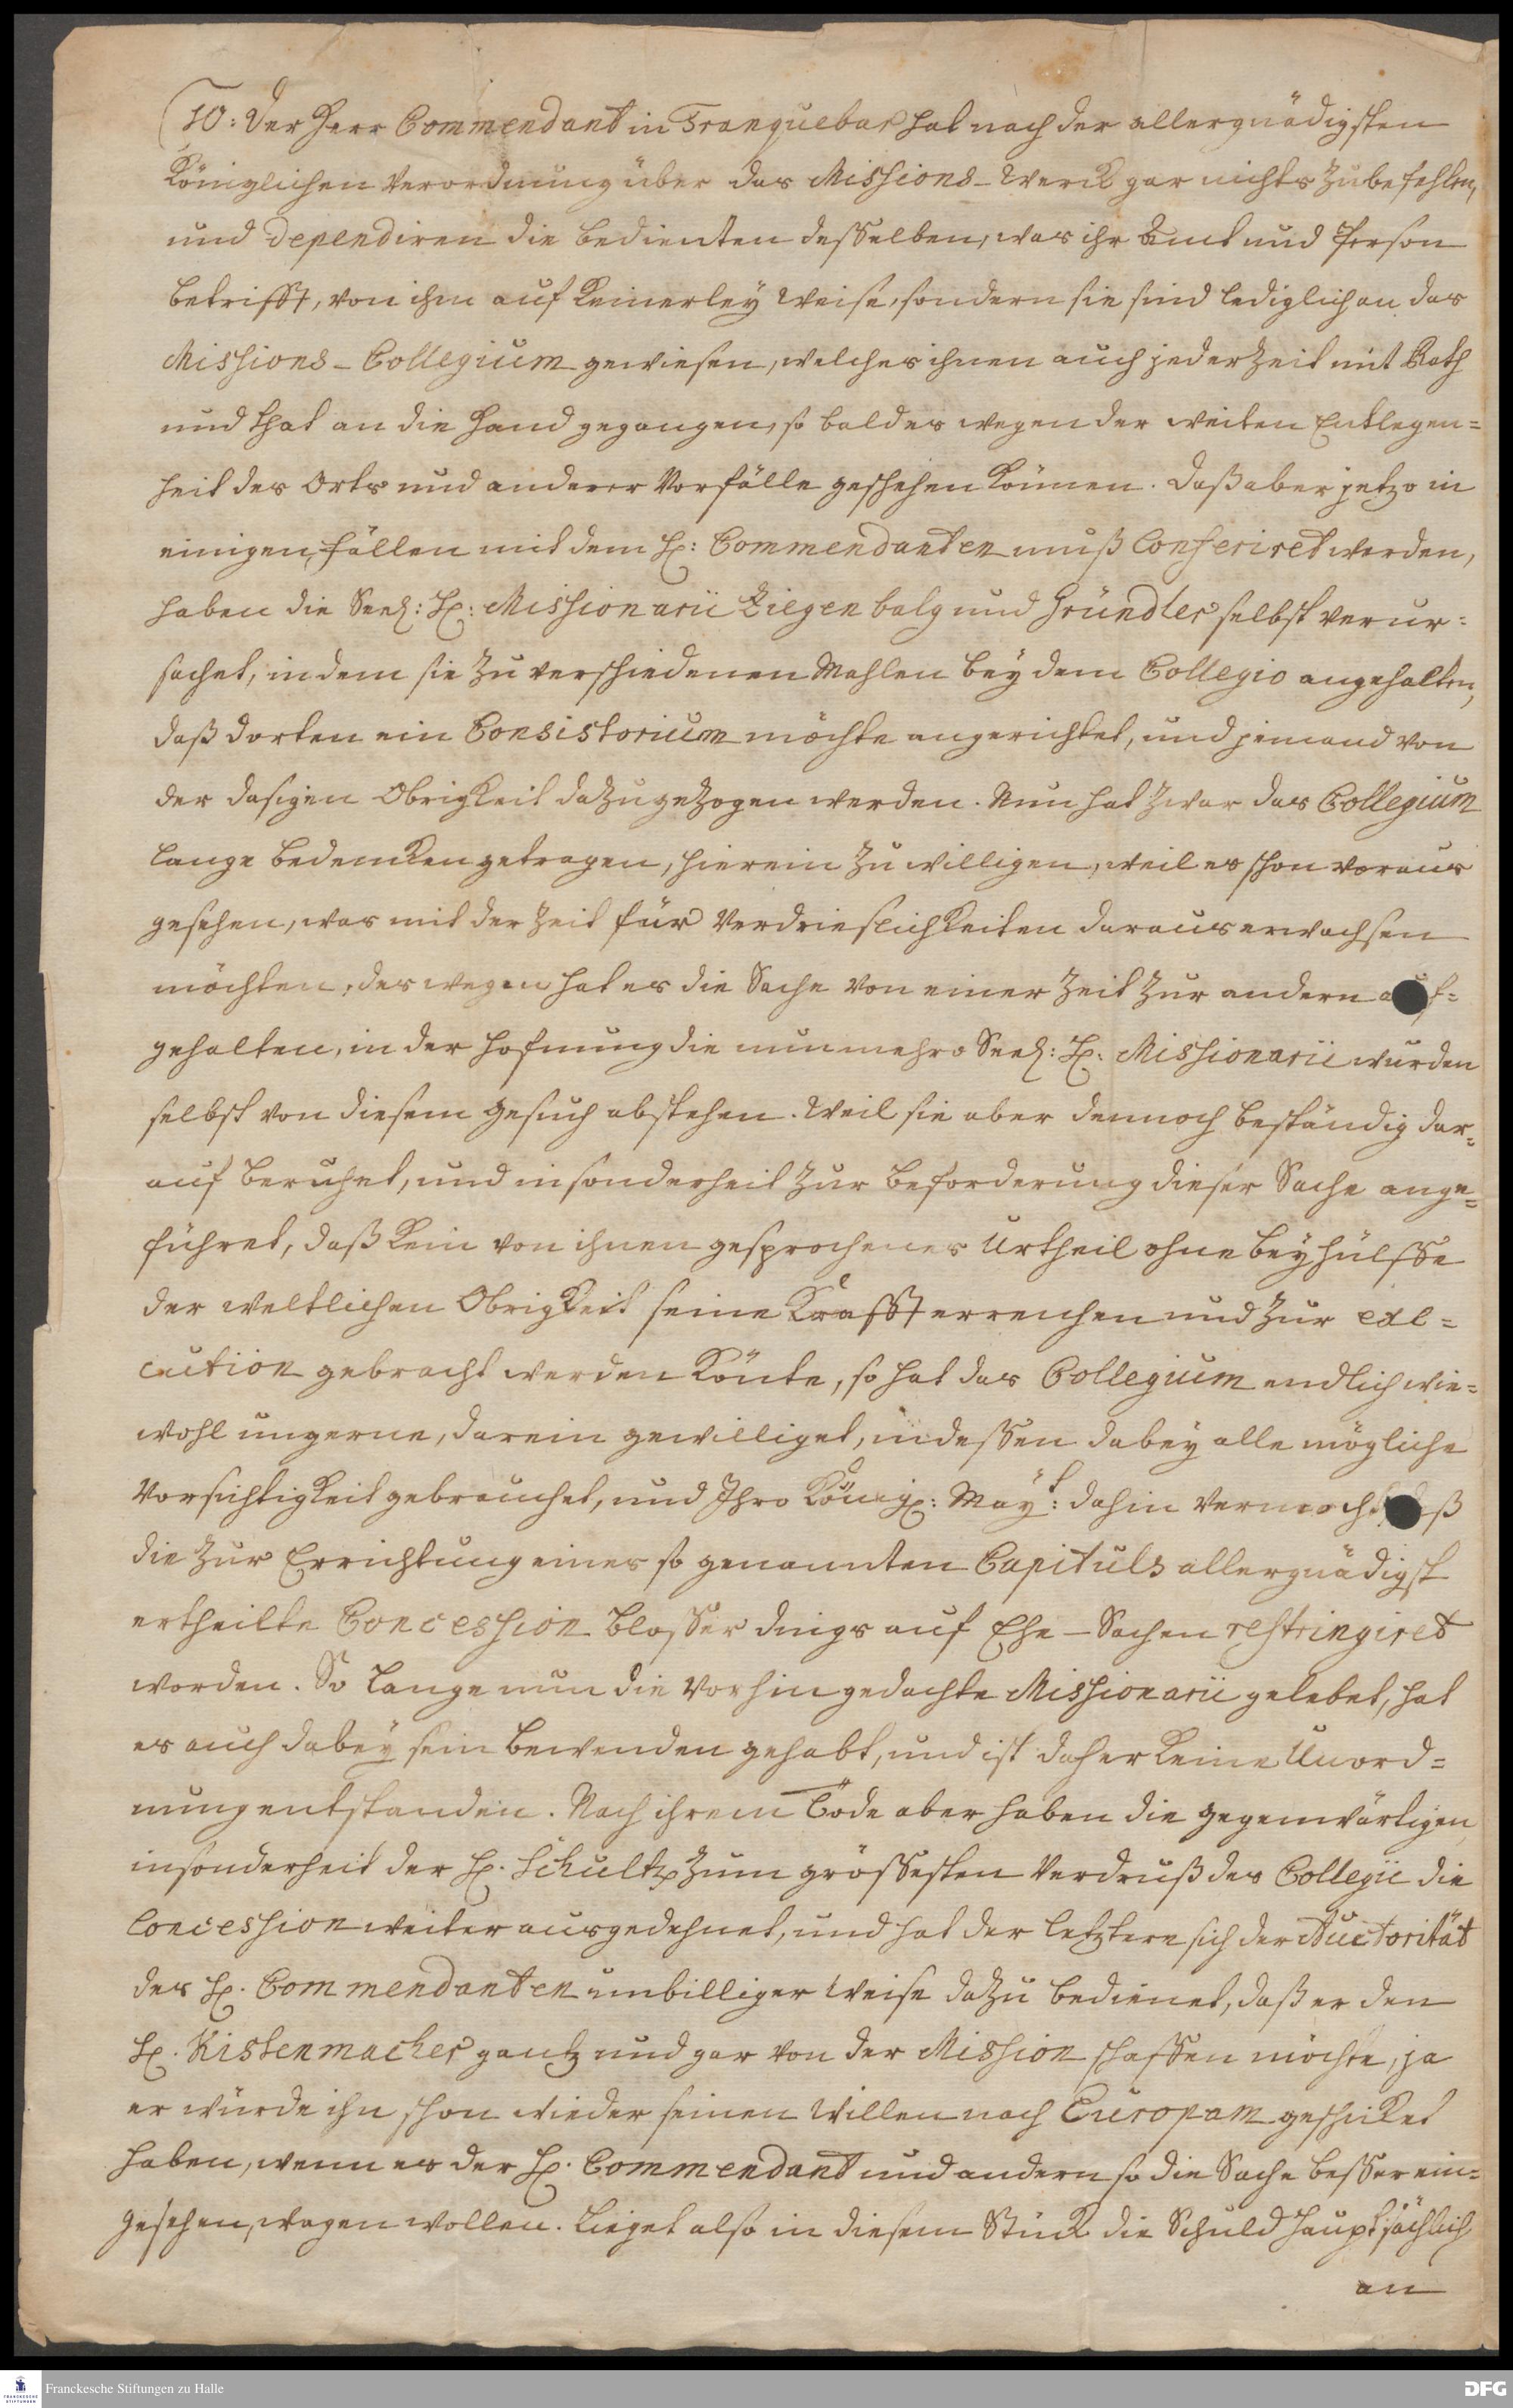 10: Der Herr Commendant in Tranquebar hat nach der allergnädigsten
Königlichen Verordnung über das Missions-Werck gar nichts zu befehlen,
und dependiren die Bedienten desselben, was ihr Amt und Person
betrifft, von ihm auf keinerley Weise, sondern sie sind lediglich an das
Missions-Collegium gewiesen, welches ihnen auch jederzeit mit Rath
und That an die Hand gegangen, so bald es wegen der weiten Entlegen=
heit des Orts und anderer Vorfälle geschehen können. Daß aber jetzo in
einigen Fällen mit dem H: Commendanten muß Conferiret werden,
haben die Seel: H: Missionarii Ziegenbalg und Gründler selbst verur=
sachet, indem sie zu verschiedenen Mahlen bey dem Collegio angehalten,
daß dorten ein Consistorium möchte angerichtet, und jemand von
der dasigen Obrigkeit dazu gezogen werden. Nun hat zwar das Collegium
lange Bedencken getragen, hierein zu willigen, weil es schon voraus
gesehen, was mit der Zeit für Verdrieslichkeiten daraus erwachsen
möchten, deswegen hat es die Sache von einer Zeit zur andern auf=
gehalten, in der Hofnung die nunmehro Seel: H: Missionarii würden
selbst von diesem Gesuch abstehen. Weil sie aber dennoch beständig dar=
auf beruhet, und insonderheit zur Beforderung dieser Sache ange=
führet, daß kein von ihnen gesprochenes Urtheil ohne Beyhülffe
der weltlichen Obrigkeit seine Krafft erreichen und zur exe=
cution gebracht werden könte, so hat das Collegium endlich wie=
wohl ungerne, darein gewilliget, indessen dabey alle mögliche
Vorsichtigkeit gebrauchet, und Ihro Königl: Mayt: dahin vermocht, daß
die zur Errichtung eines so genannten Capituls allergnädigst
ertheilte Concession blosser dings auf Ehe-Sachen restringiret
worden. So lange nun die vorhin gedachte Missionarii gelebet, hat
es auch dabey sein Bewenden gehabt, und ist daher keine Unord=
nung entstanden. Nach ihrem Tode aber haben die gegenwärtigen
insonderheit der H. Schultz zum grössesten Verdruß des Collegii die
Concession weiter ausgedehnet, und hat der letztere sich der Auctorität
des H. Commendanten unbilliger Weise dazu bedienet, daß er den
H. Kistenmacher gantz und gar von der Mission schaffen möchte, ja
er würde ihn schon wieder seinen Willen nach Europam geschicket
haben, wenn es der H. Commendant und andern so die Sache besser ein=
gesehen, wagen wollen. Lieget also in diesem Stück die Schuld hauptsächlich
an
Franckesche Stiftungen zu Halle
DFG